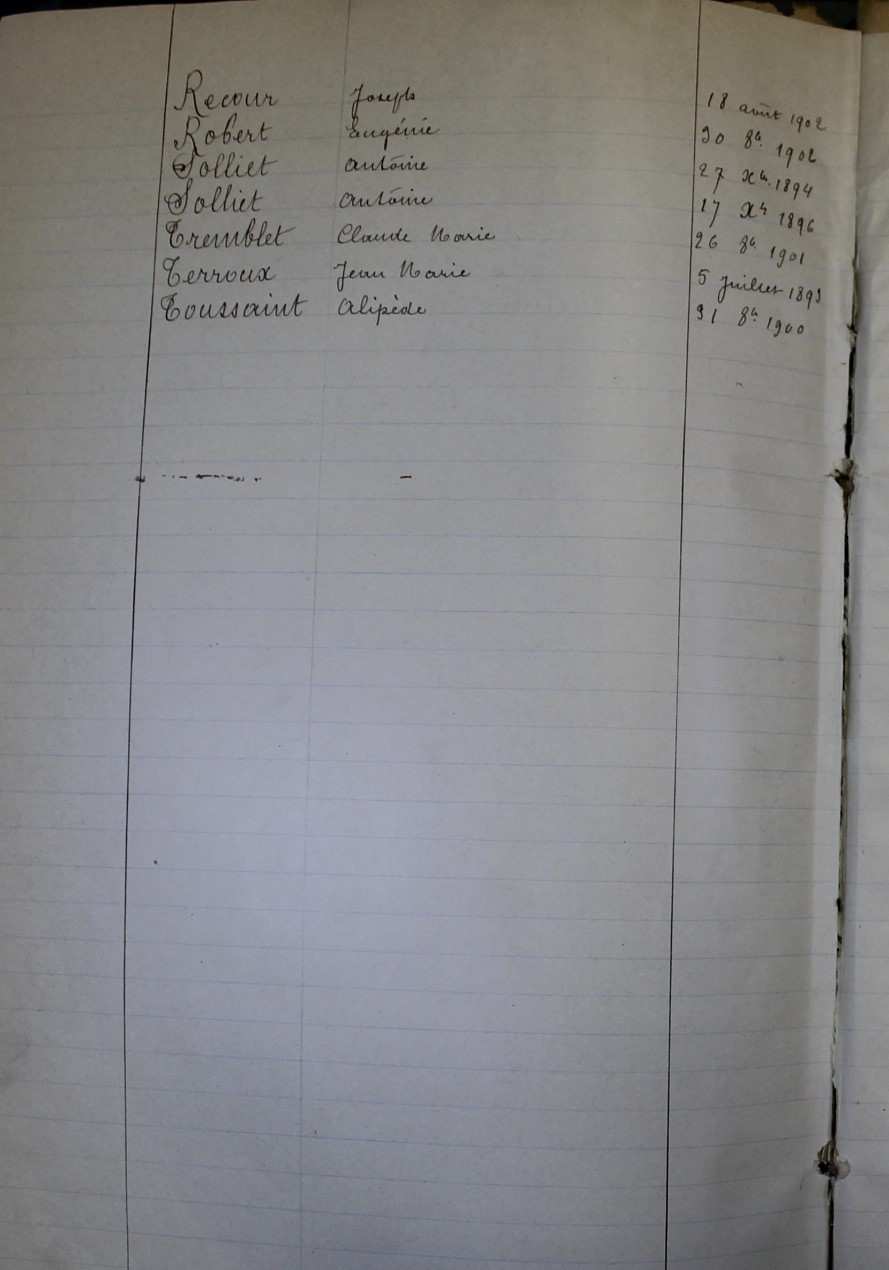 Recour Joseph 18 août 1902
Robert Eugénie 30 8bre 1902
Solliet Antoine 27 Xbre 1894
Solliet Antoine 17 Xbre 1896
Tremblet Claude Marie 26 8bre 1901
Terroux Jean Marie 5 Juillet 1893
Toussaint Alipède 31 8bre 1900